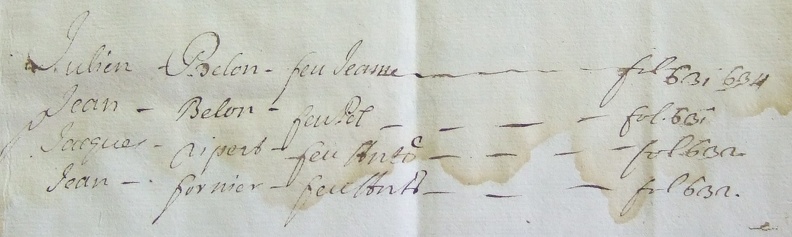 Julien Belon - feu Jeanne fol 631 634
Jean - Belon - feu Pol fol. 631
Jacques - Aipert - feu Anto fol. 632.
Jean - fornier - feu Anto fol 632.